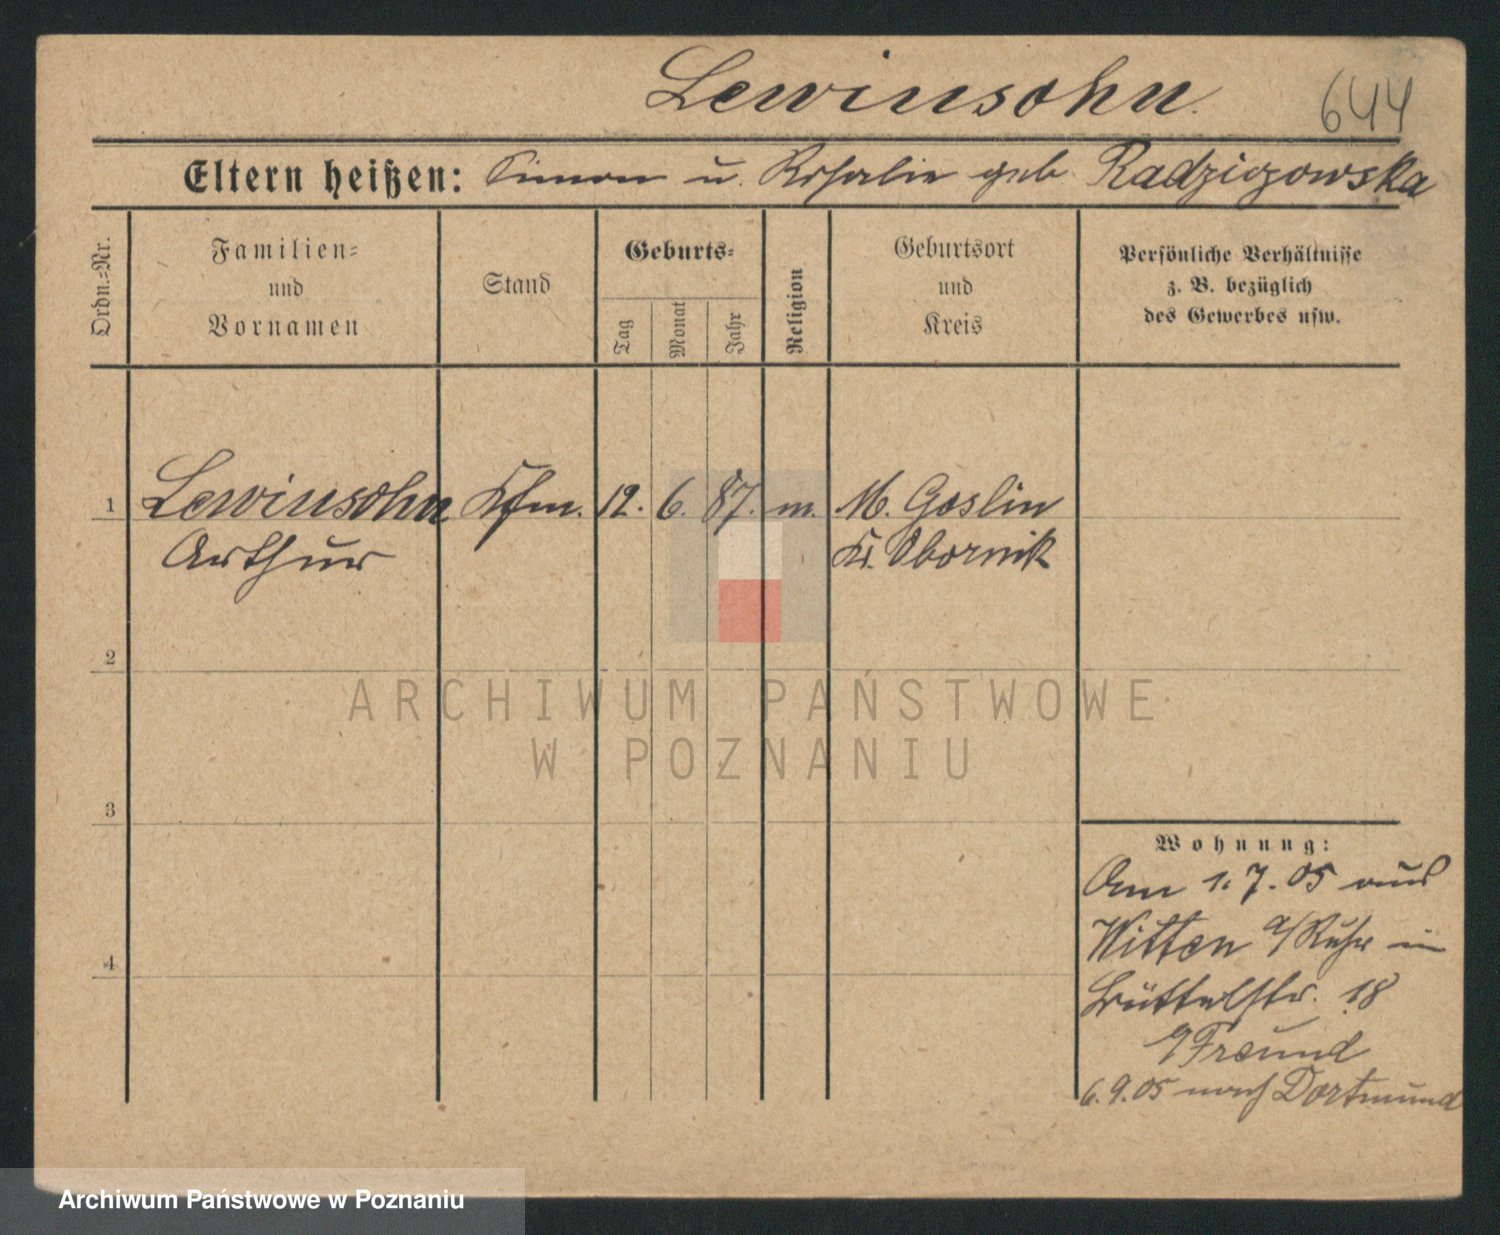 Lewinsohn.
644
Eltern heißen: Simon u. Rosalie geb. Radziozowska
Ordn.=Nr.
Familien=
und
Vornamen
Stand
Geburts=
Tag
Monat
Jahr
Religion
Geburtsort
und
Kreis
Persönliche Verhältnisse
z. B. bezüglich
des Gewerbes usw.
1 Lewinsohn Kfm. 12. 6. 87. m. M. Goslin
Arthur Kr. Obornik
2
3
4
Wohnung:
Am 1.7.05 aus
Witten a/Ruhr in
Büttelstr. 18
b/Freund
6.9.05 nach Dortmund
ARCHIWUM PAŃSTWOWE
W POZNANIU
Archiwum Państwowe w Poznaniu